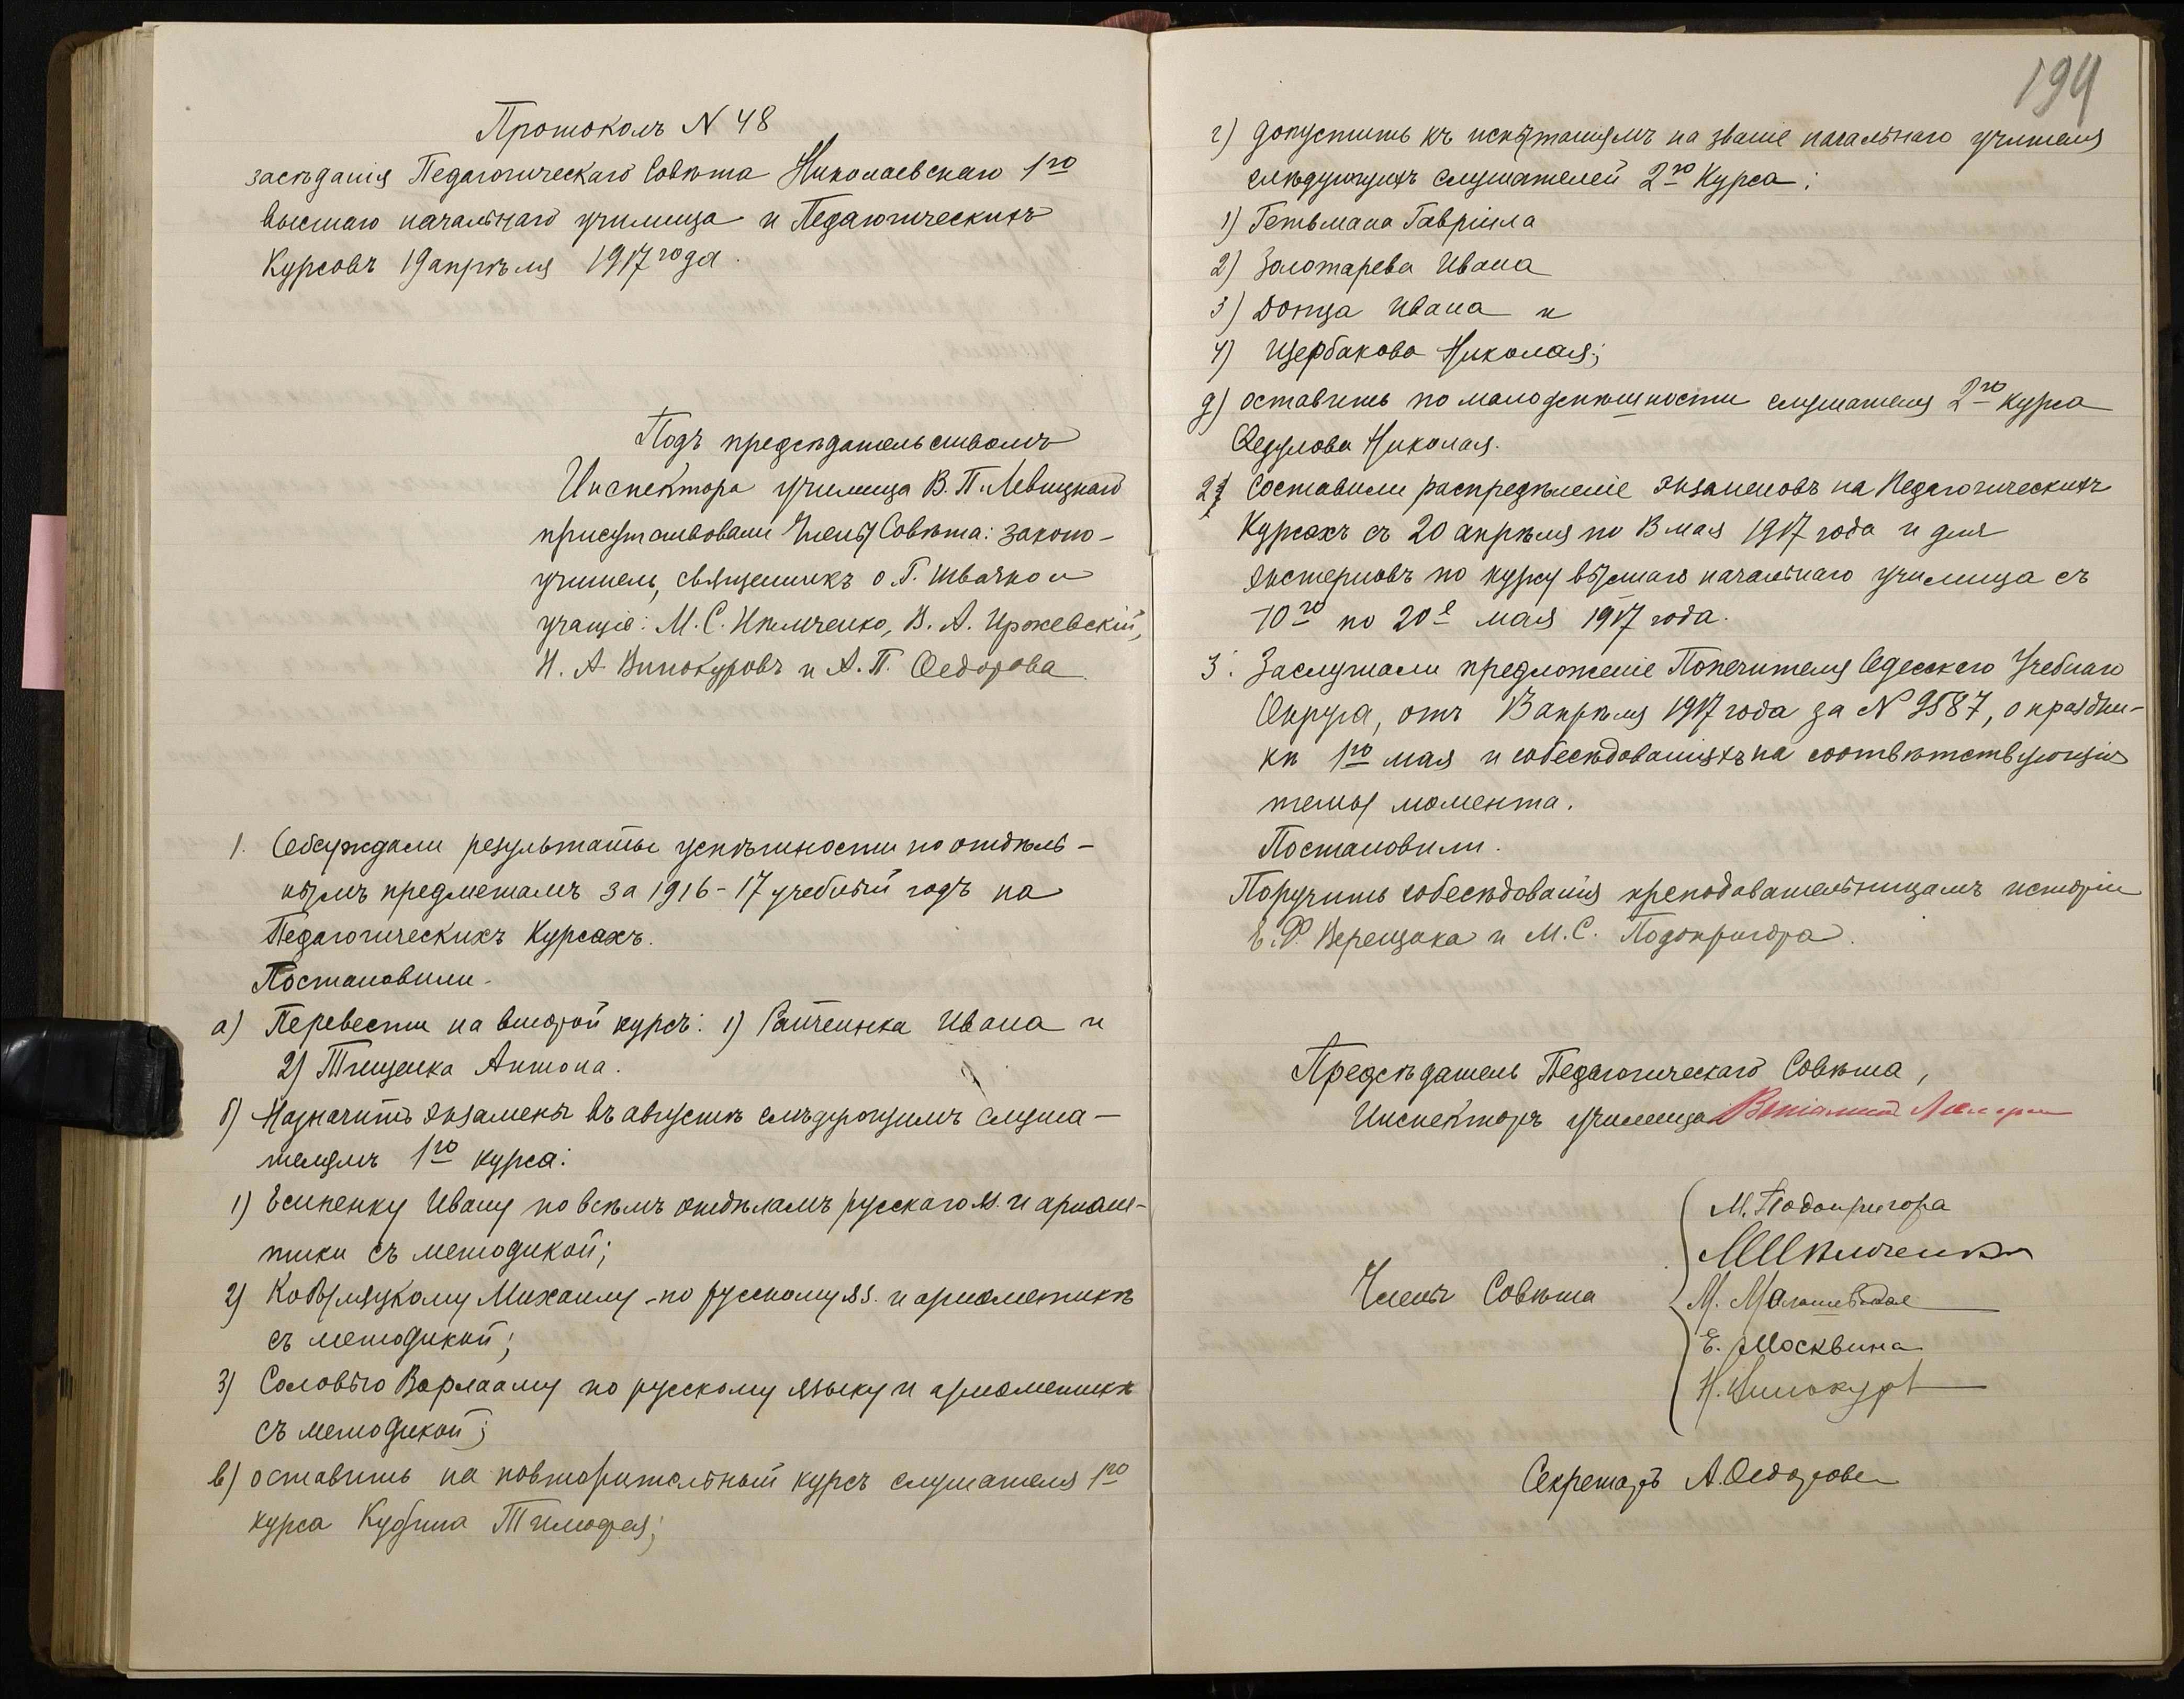 Протоколъ N 48
засѣданія Педагогическаго Совѣта Николаевскаго 1го
высшаго начальнаго училища и Педагогическихъ
Курсовъ 19 апрѣля 1917 года.
Подъ предсѣдательствомъ
Инспектора училища В. П. Левицкаго
присутствовали Члены Совѣта: законо-
учитель, священникъ о. Г. Швачко и
учащіе: М. С. Ильченко, В. А. Иржевскій,
Н. А. Винокуровъ и А. П. Ѳедорова.
1. Обсуждали результаты успѣшности по отдѣль-
нымъ предметамъ за 1916-17 учебный годъ на
Педагогическихъ Курсахъ.
Постановили.
а) Перевести на второй курсъ: 1) Ивана и
2) Тищенка Антона.
б) Назначить экзамены въ августѣ слѣдующимъ слуша-
телямъ 1го курса:
1) Есипенку Ивану по всѣмъ отдѣламъ русскаго яз. и ариѳме-
тики съ методикой;
2) Михаилу - по русскому яз. и ариѳметикѣ
съ методикой;
3) Соловью Варлааму по русскому языку и ариѳметикѣ
съ методикой;
в) оставить на повторительный курсъ слушателя 1го
курса Тимофея;
194
г) допустить къ испытаніямъ на званіе начальнаго учителя
слѣдующихъ слушателей 2го Курса:
1) Гетьмана Гавріила
2) Золотарева Ивана
3) Донца Ивана и
4) Щербакова Николая;
д) оставить по малоуспѣшности слушателя 2го курса
Ѳедулова Николая.
2. Составили распредѣленіе экзаменовъ на Педагогическихъ
Курсахъ съ 20 апрѣля по 13 мая 1917 года и для
экстерновъ по курсу высшаго начальнаго училища съ
10го по 20е мая 1917 года.
3. Заслушали предложеніе Попечителя Одесскаго Учебнаго
Округа, отъ 13 апрѣля 1917 года за N 9587, о праздни-
кѣ 1го мая и собесѣдованіяхъ на соотвѣтствующія
темы момента.
Постановили.
Поручить собесѣдованія преподавательницамъ исторіи
Е. Ф. Верещака и М. С. Подопригора.
Предсѣдатель Педагогическаго Совѣта,
Инспекторъ училища
М. Подопригора
Члены Совѣта
Е. Москвина
Н. Винокуровъ
Секретарь А. Ѳедорова